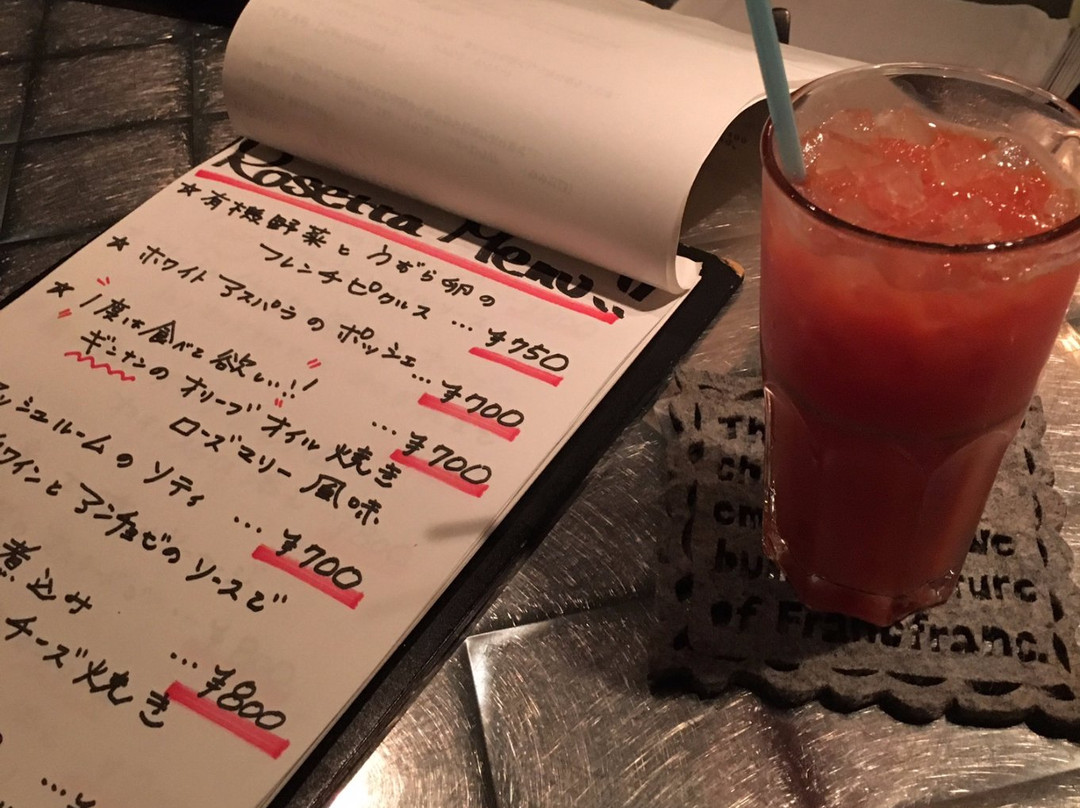 Rosetta Menu!!
★有機野菜とうずら卵の
フレンチピクルス … ¥750
★ホワイトアスパラのポッシェ… ¥700
★"1度は食べて欲しい!!"
ギンナンのオリーブオイル焼き … ¥700
ローズマリー風味
ッシュルームのソティ … ¥700
ワインとアンチョビのソースで
煮込み … ¥800
チーズ焼き
Th
ch
em
bu
ture
of Francfranc.